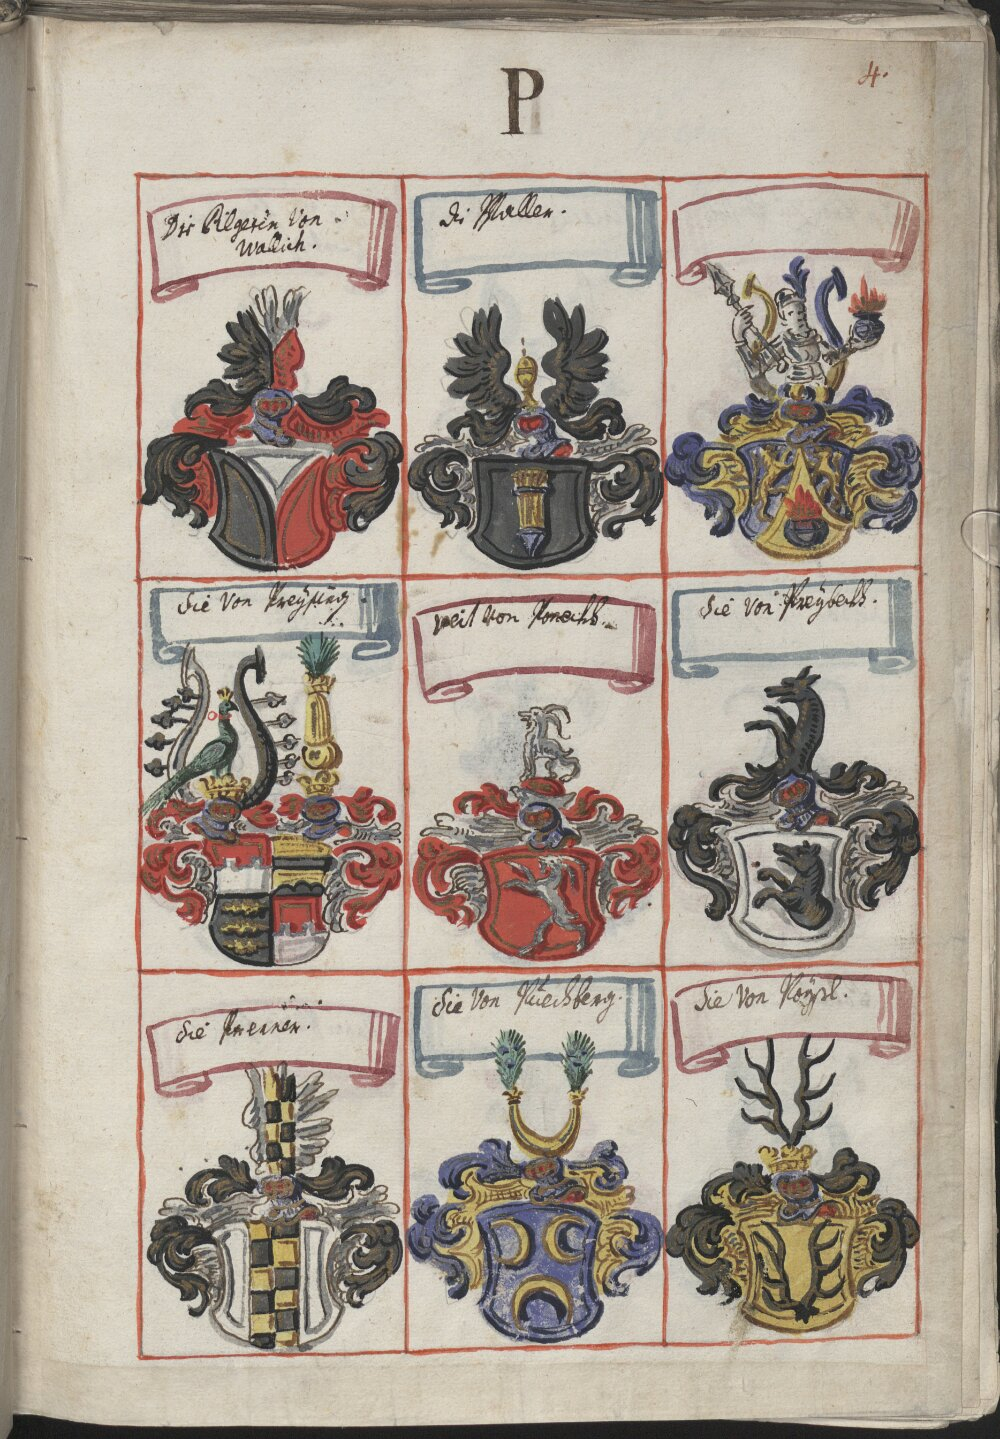 P
4.
Die Pilgerin von
Wallich.
Di Pfaller.
Die von Preysing.
veit von Ponechs.
Die von Preybeckh.
Die Prenner.
Die von Puechberg.
Die von Poyssl.